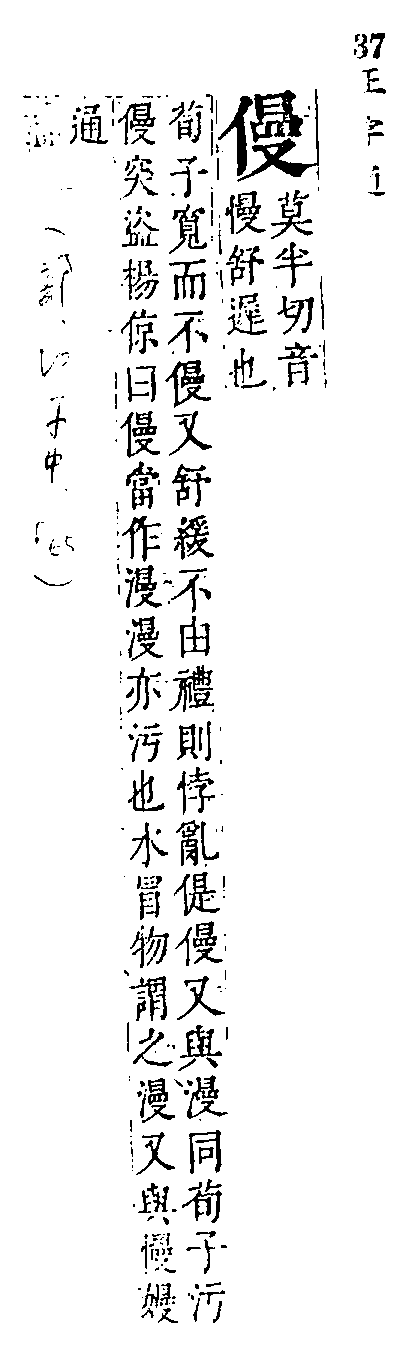 37
正字通
僈
莫半切音
慢舒遲也
荀子寛而不僈又舒緩不由禮則悖亂偍僈又與漫同荀子污
僈突盜楊倞曰僈當作漫漫亦污也水冒物謂之漫又與慢嫚
通